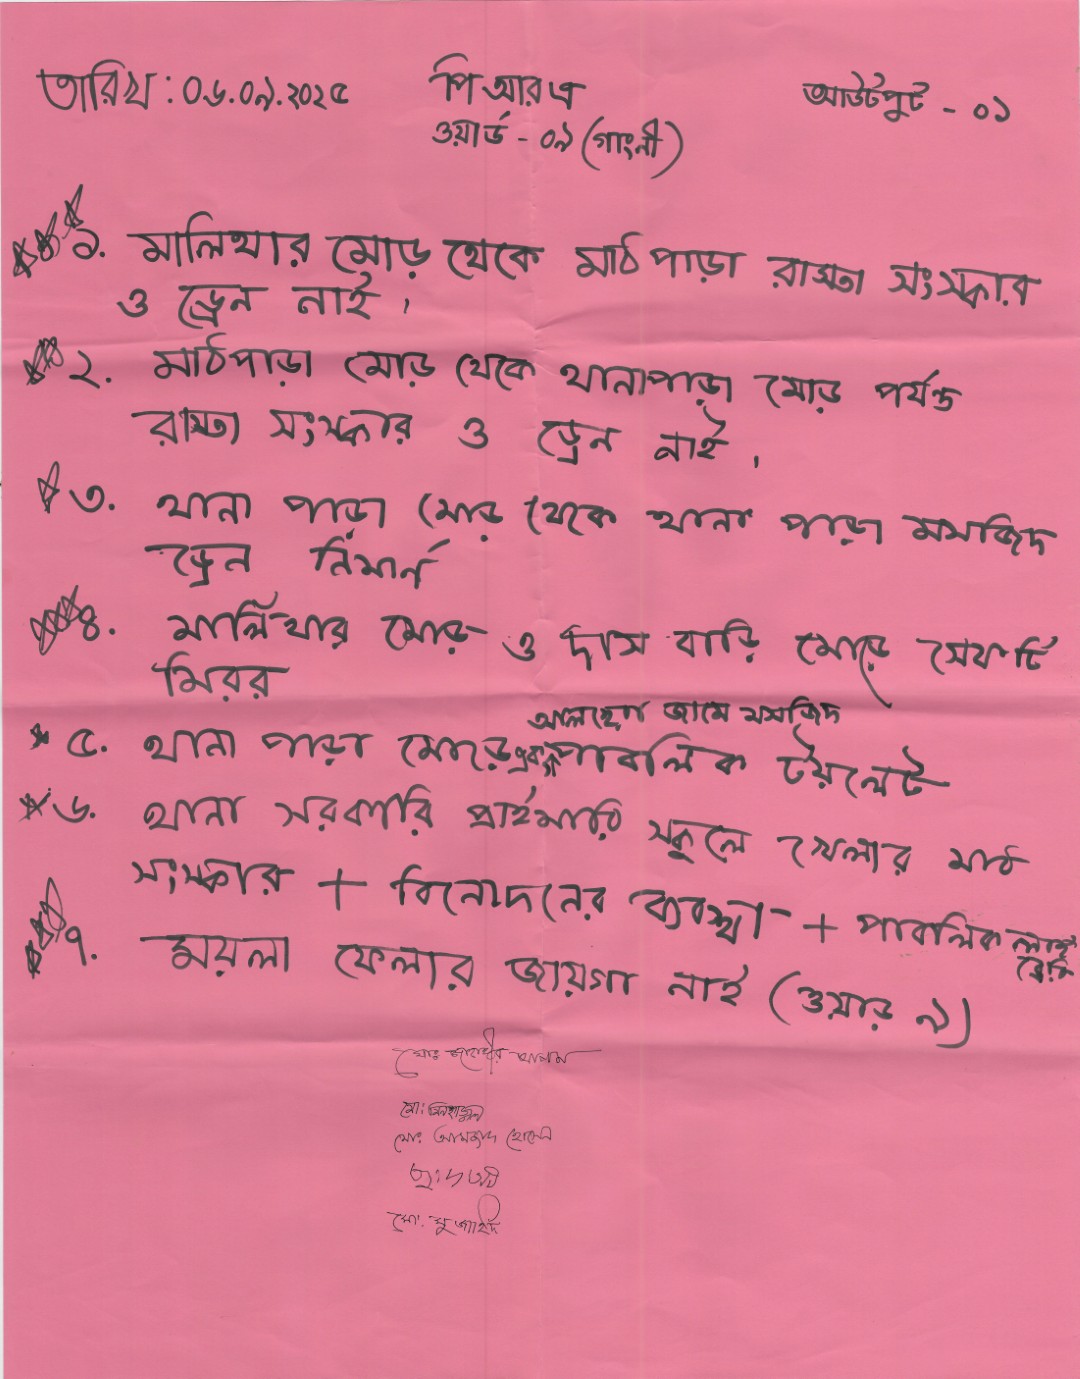 তারিখ : ০৬.০৯.২০২৫
পি আর এ
আউটপুট - ০১
ওয়ার্ড - ০৯ (গাংনী)
১. মালিথার মোড় থেকে মাঠ পাড়া রাস্তা সংস্কার
ও ড্রেন নাই।
২. মাঠপাড়া মোড় থেকে থানাপাড়া মোড় পর্যন্ত
রাস্তা সংস্কার ও ড্রেন নাই।
৩. থানা পাড়া মোড় থেকে থানা পাড়া মসজিদ
ড্রেন নির্মান
৪. মালিথার মোড় ও দাস বাড়ি মোড়ে সেফটি
মিরর
জামে মসজিদ
৫. থানা পাড়া মোড়ে পাবলিক টয়লেট
৬. থানা সরকারি প্রাইমারি স্কুলে খেলার মাঠ
সংস্কার + বিনোদনের ব্যবস্থা + পাবলিক
৭. ময়লা ফেলার জায়গা নাই (ওয়ার্ড ৯)
মোঃ আলম
মোঃ
মোঃ আমজাদ হোসেন
মোঃ